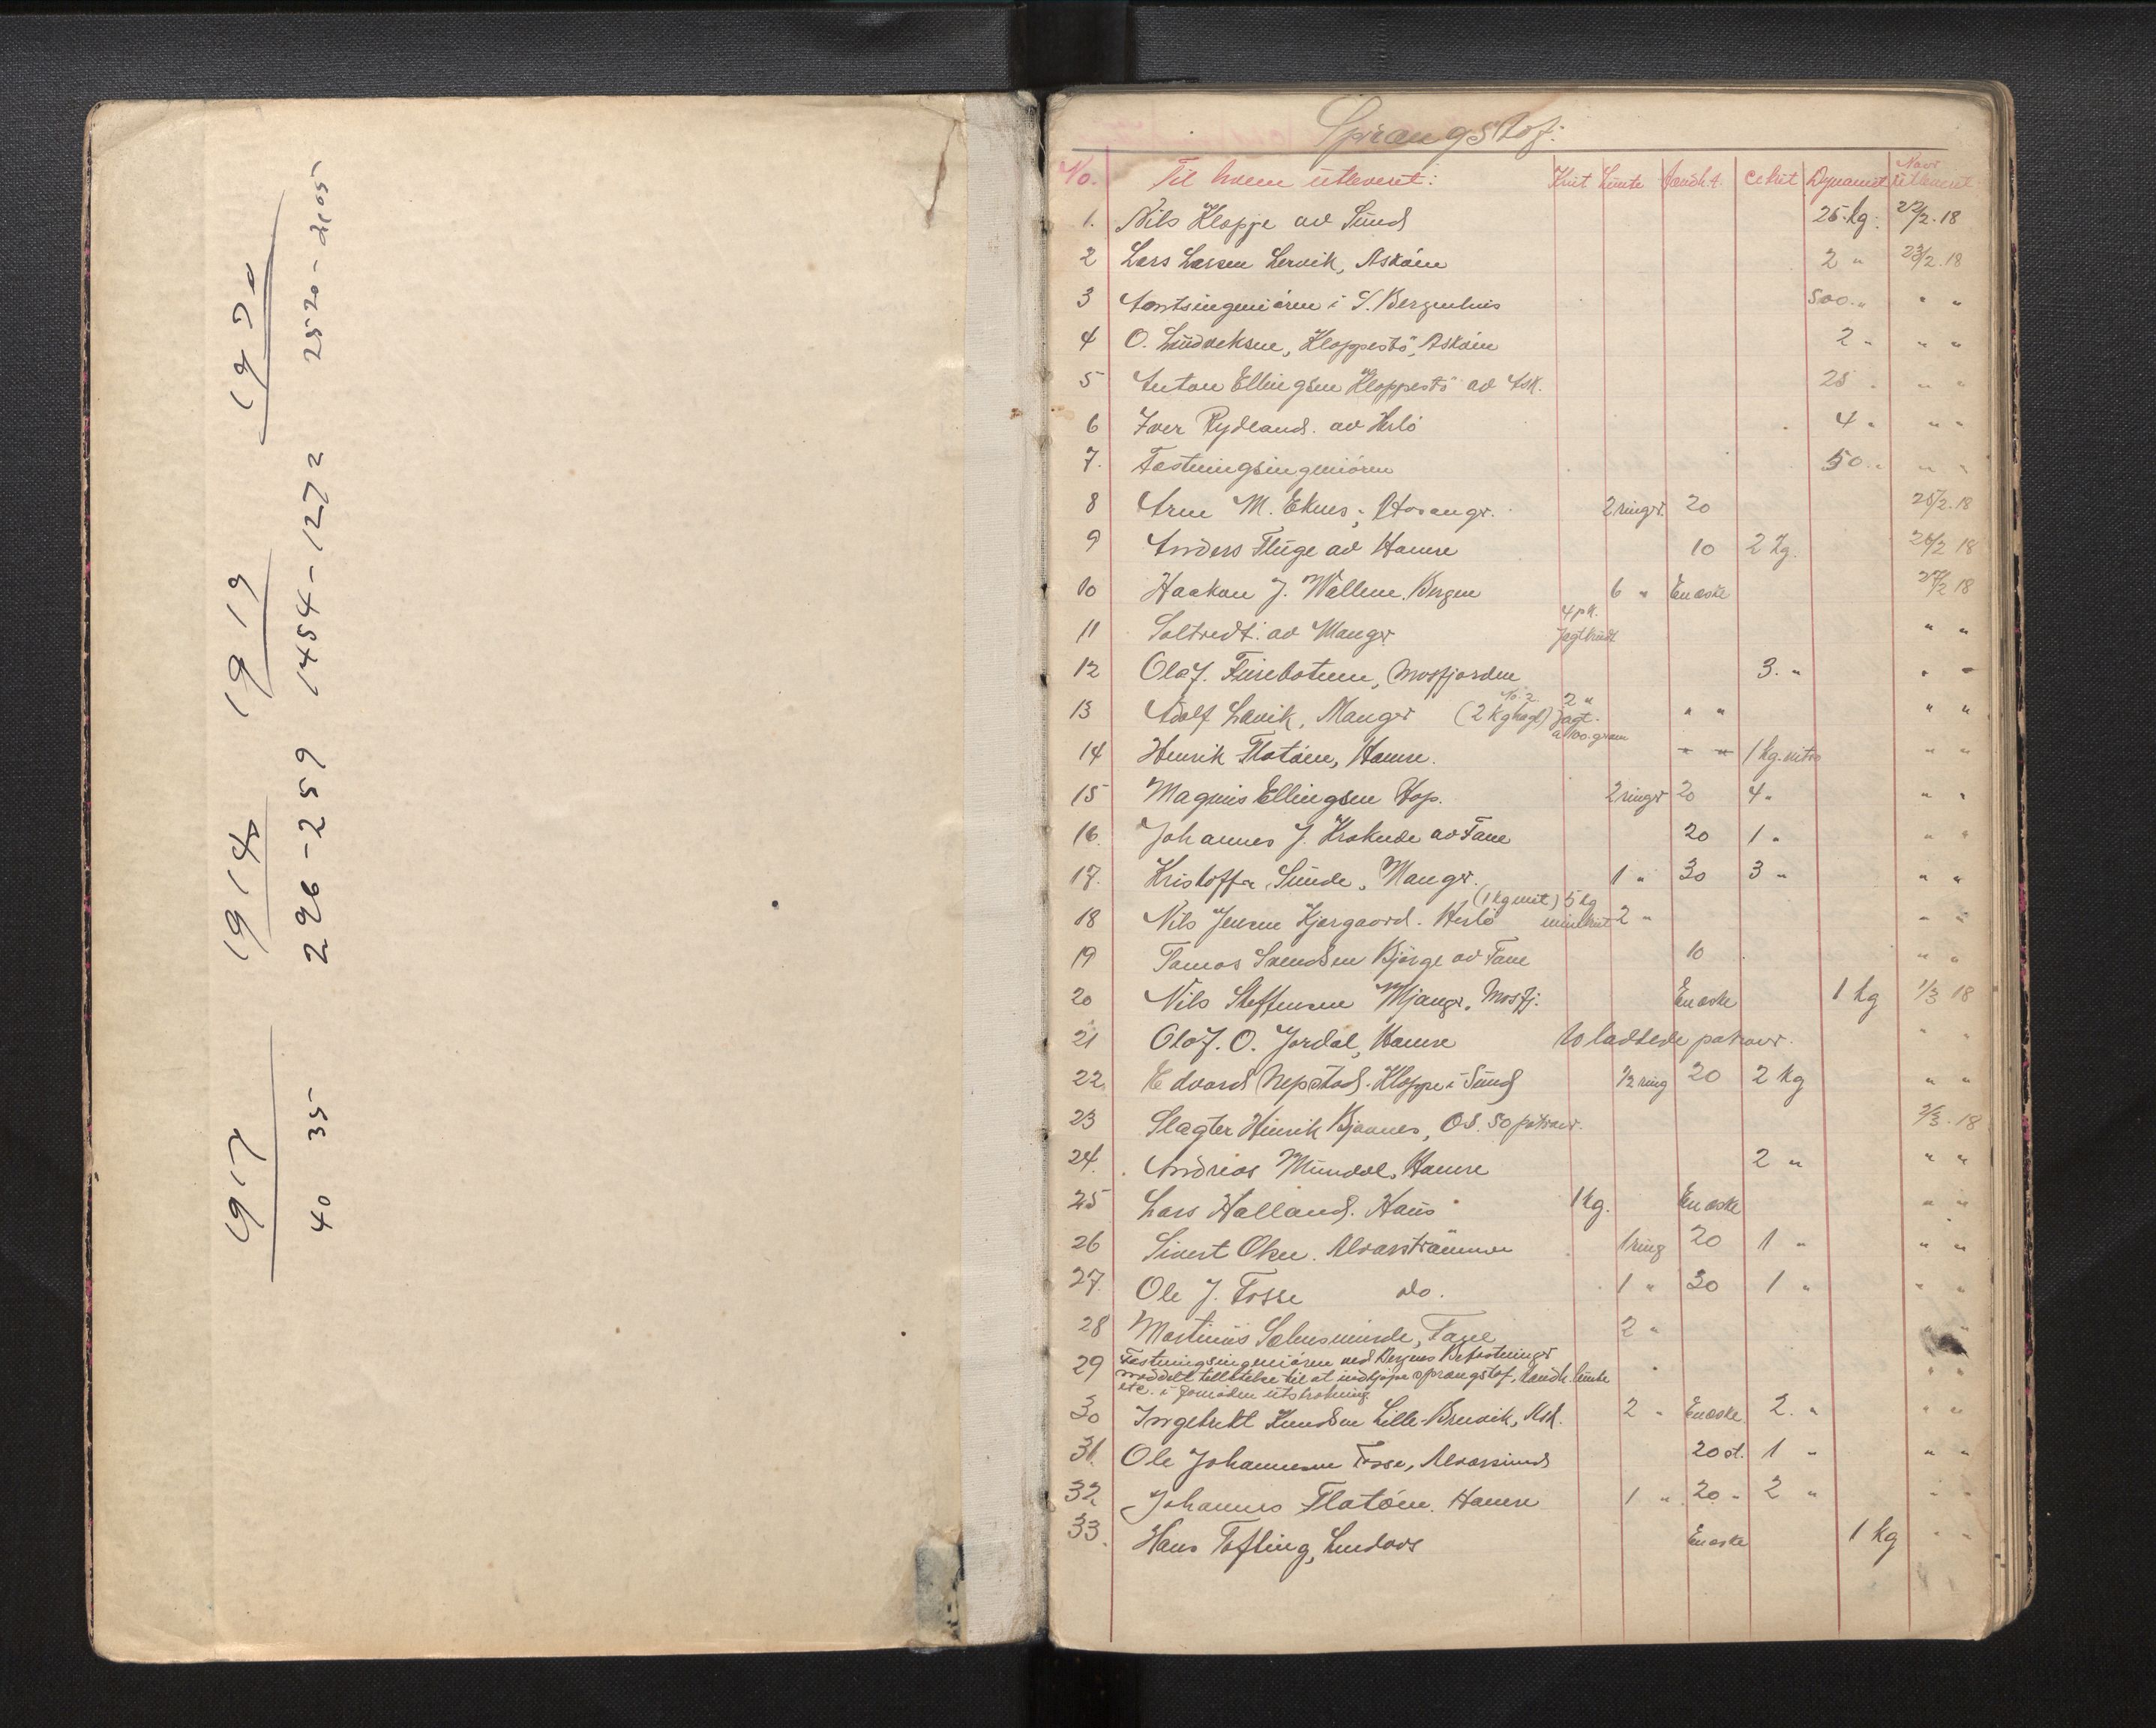 1917
40 35
1914
296-259
1919
1454-1272
1920
2520-2105
Sprængstof:
No. Til hvem utleveret: Krut Lunte Fændh. Cekrit Dynamit Naar utleveret
1. Nils Kloppe av Sund 25 kg. 22/2.18
2 Lars Larsen Lervik, Askøen 2 " 23/2.18
3 Amtsingeniøren i S. Bergenhus 500 " " "
4 O. Ludveksen, Kleppestø, Askøen 2 " " "
5 Anton Ellingsen Kleppestø av Ask. 25 " " "
6 Iver Rydland av Herlø 4 " " "
7. Fæstningsingeniøren 50 " " "
8 Arne M. Eknes, Hosanger. 2 ringer. 20 25/2.18
9 Anders Fluge av Hamre 10 2 kg. 26/2 18
10 Haakon J. Wallem. Bergen 6 " En æske 27/2 18
11 Soltvedt av Manger 4 pk. Jagtkrudt " "
12 Olaf Furebotnen, Mosfjorden 3. " " "
13 Adolf Lavik, Manger (2 kg hagl No. 2) 2 " Jagt. a 100 gram " " " "
14 Henrik Flatøen, Hamre. " " 1 kg. nitro " "
15 Magnus Ellingsen Hop. 2 ringer 20 4 " " "
16. Johannes J. Krokeide av Fane 20 1 " " "
17. Kristoffer Sunde, Manger. 1 " 30 3 " " "
18 Nils Jensen Kjærgaard. Herlø (1 kg nit) 5 kg minekrut 2 " " "
19 Tomas Svendsen Bjørge av Fane 10 " "
20 Nils Steffensen Mjanger, Mosfj. En æske 1 kg 1/3 18
21 Olaf. O. Jordal, Hamre 10 ladtede patroner. " "
22. Edvard Nepstad. Kloppe i Sund 1/2 ring 20 2 kg " "
23 Slagter Hinrik Bjånes, Os. 50 patroner. 2/3.18
24. Andreas Mundal, Hamre 2 " " "
25 Lars Halland. Haus 1 kg. En æske " "
26 Sivert Oken. Alværstrømmen 1 ring 20 1 " " "
27. Ole J. Fosse do. 1 " 30 1 " " "
28 Martinus Solensminde, Fane 2 " " "
29 Fæstningsingeniøren ved Bergens Befæstninger
meddelt tilladelse til at indkjøpe sprængstof, tændh. lunte " "
etc. i
30 Ingebrikt Knudsen Lille-Bruvik, Ask. 2 " En æske 2. " " "
31. Ole Johannesen Fosse, Alværsund 20 st. 1 " " "
32. Johannes Flatøen. Hamre 1 " 20 " 2 " " "
33. Hans Tofting, Lindaas En æske 1 kg " "